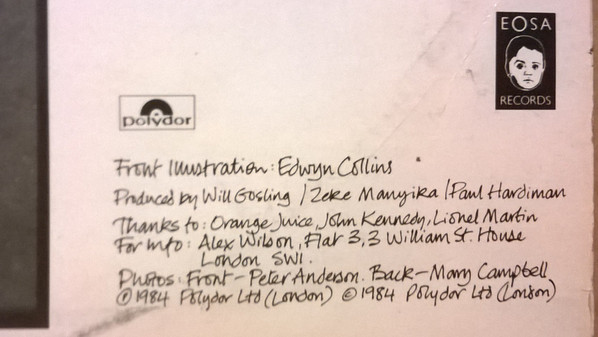 EOSA
RECORDS
polydor
Front Illustration: Edwyn Collins
Produced by Will Gosling / Zeke Manyika / Paul Hardiman
Thanks to: Orange Juice, John Kennedy, Lionel Martin
For Info: Alex Wilson, Flat 3, 3 William St. House
London SW1.
Photos: Front - Peter Anderson. Back - Mary Campbell
℗ 1984 Polydor Ltd (London) © 1984 Polydor Ltd (London)